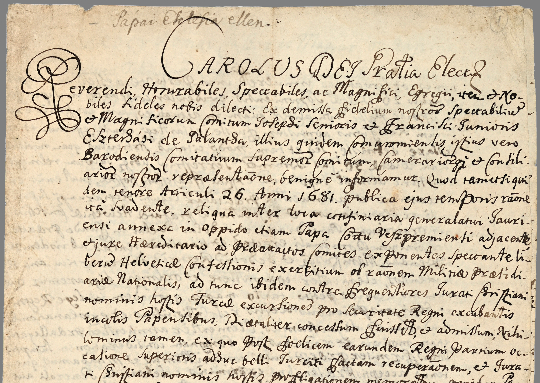 Pápai Eklesia ellen.
CAROLUS DEI Gratia Elect
Reverendi, Honorabiles, Spectabiles, ac Magnifici, Egregii, et No-
biles fideles nobis dilecti. Ex demissa fidelium nostror Spectabiliu
et Magnificorum Comitum Josephi Senioris et Francisci Junioris
Eszterhási de Galantha, illius quidem Comaromiensis istius vero
Barsodiensis Comitatuum Supremor Comitum, Camerarior et Consili-
arior nostror repraesentatione, benigne informamur, Quod tametsi qui
dem tenore Articuli 26. Anni 1681. publica ejus temporis
ita Svadente, religua inter loca confiniaria generalatui Jauri-
ensi annexa in oppido etiam Papa Cottu Veszpremiensi adjacente
et jure Hereditario ad praeattactos Comites exponentes Spectante li-
berum Helveticae Confessionis exercitium ob raonem Militiae Praesidi-
ariae Nationalis, ad tunc ibidem contra frequentiores Jurati Xstiani
nominis hostis Turcae excursiones pro Securitate Regni excubantis
incolis Papensibus, concessum fuisset et admissum, Nihi
lominus tamen, ex quo post foelicem earundem Regni Partium oc-
casione superioris adhuc belli Turcici factam recuperaonem, et Jura-
ti Christiani nominis hostis profligationem